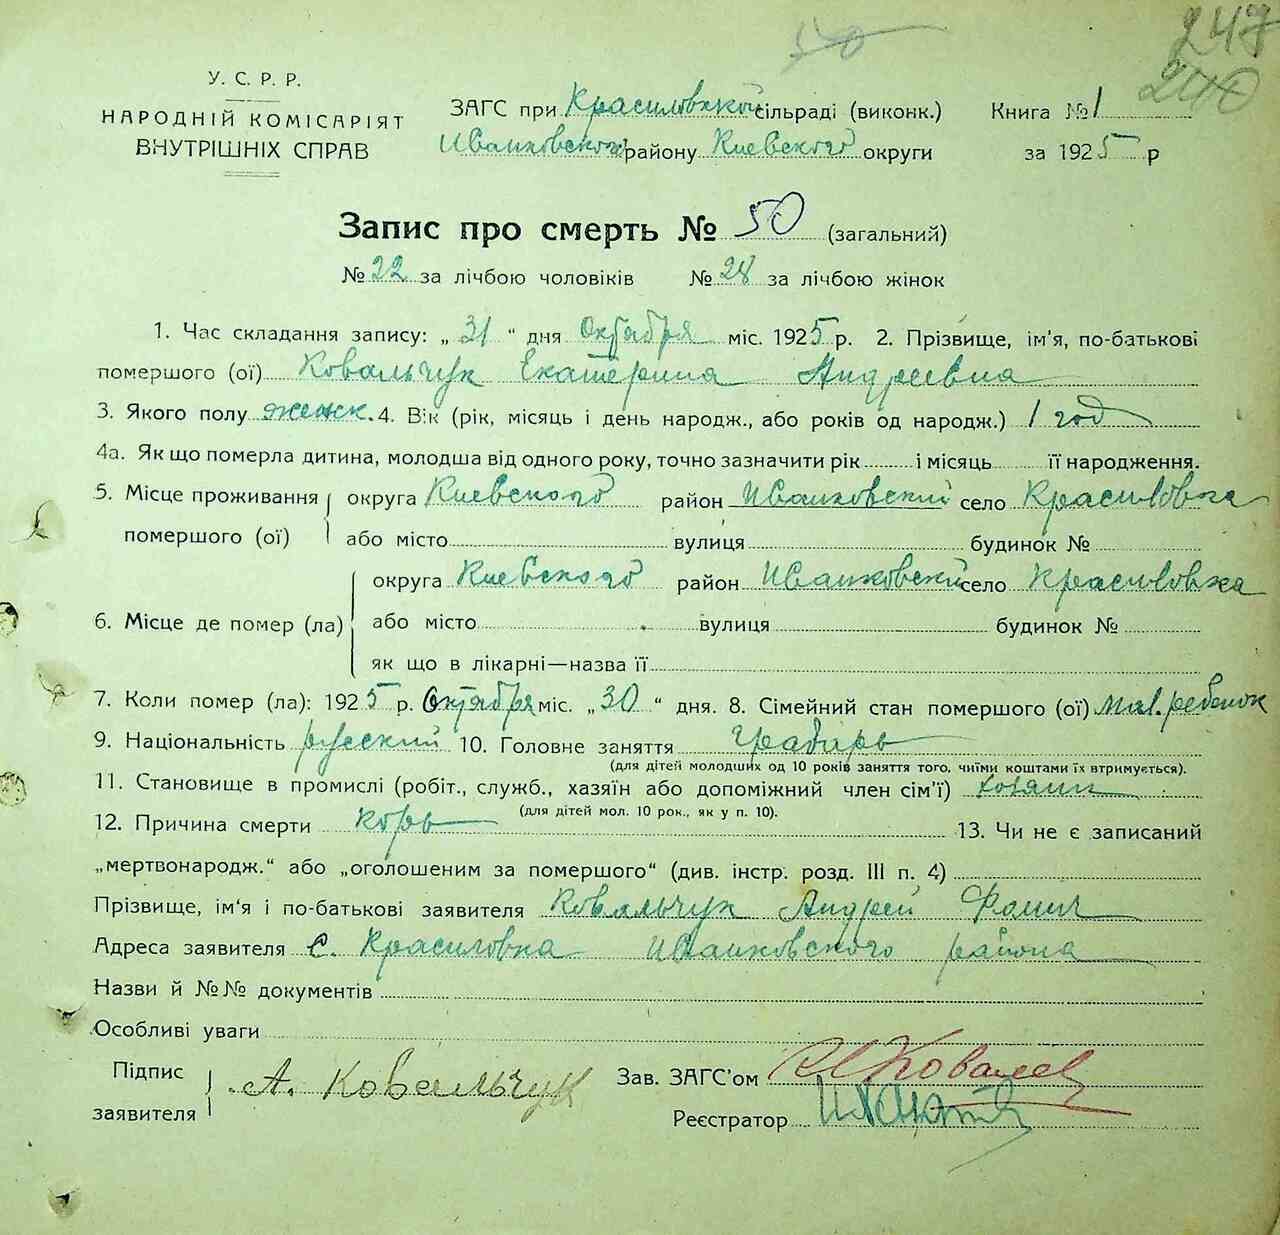 50
247
240
У. С. Р. Р.
НАРОДНІЙ КОМІСАРІЯТ
ВНУТРІШНІХ СПРАВ
ЗАГС при Красиловской сільраді (виконк.)
Книга № 1
Иванковского району Киевского округи
за 1925 р
Запис про смерть № 50 (загальний)
№ 22 за лічбою чоловіків № 28 за лічбою жінок
1. Час складання запису: „ 31 “ дня Октября міс. 1925 р. 2. Прізвище, ім'я, по-батькові
помершого (ої) Ковальчук Екатерина Андреевна
3. Якого полу женск. 4. Вік (рік, місяць і день народж., або років од народж.) 1 год
4а. Як що померла дитина, молодша від одного року, точно зазначити рік і місяць її народження.
5. Місце проживання округа Киевского район Иванковский село Красиловка
помершого (ої) або місто вулиця будинок №
округа Киевского район Иванковский село Красиловка
6. Місце де помер (ла) або місто вулиця будинок №
як що в лікарні—назва її
7. Коли помер (ла): 1925 р. Октября міс. „ 30 “ дня. 8. Сімейний стан помершого (ої) мал. ребенок
9. Національність русский 10. Головне заняття Грабарь
(для дітей молодших од 10 років заняття того, чиїми коштами їх втримується).
11. Становище в промислі (робіт., служб., хазяїн або допоміжний член сім'ї) хозяин
(для дітей мол. 10 рок., як у п. 10).
12. Причина смерти корь 13. Чи не є записаний
„мертвонародж.“ або „оголошеним за помершого“ (див. інстр. розд. III п. 4)
Прізвище, ім'я і по-батькові заявителя Ковальчук Андрей Фомич
Адреса заявителя с. Красиловка Иванковского района
Назви й №№ документів
Особливі уваги
Підпис заявителя А. Ковальчук
Зав. ЗАГС'ом Ковалев
Реєстратор